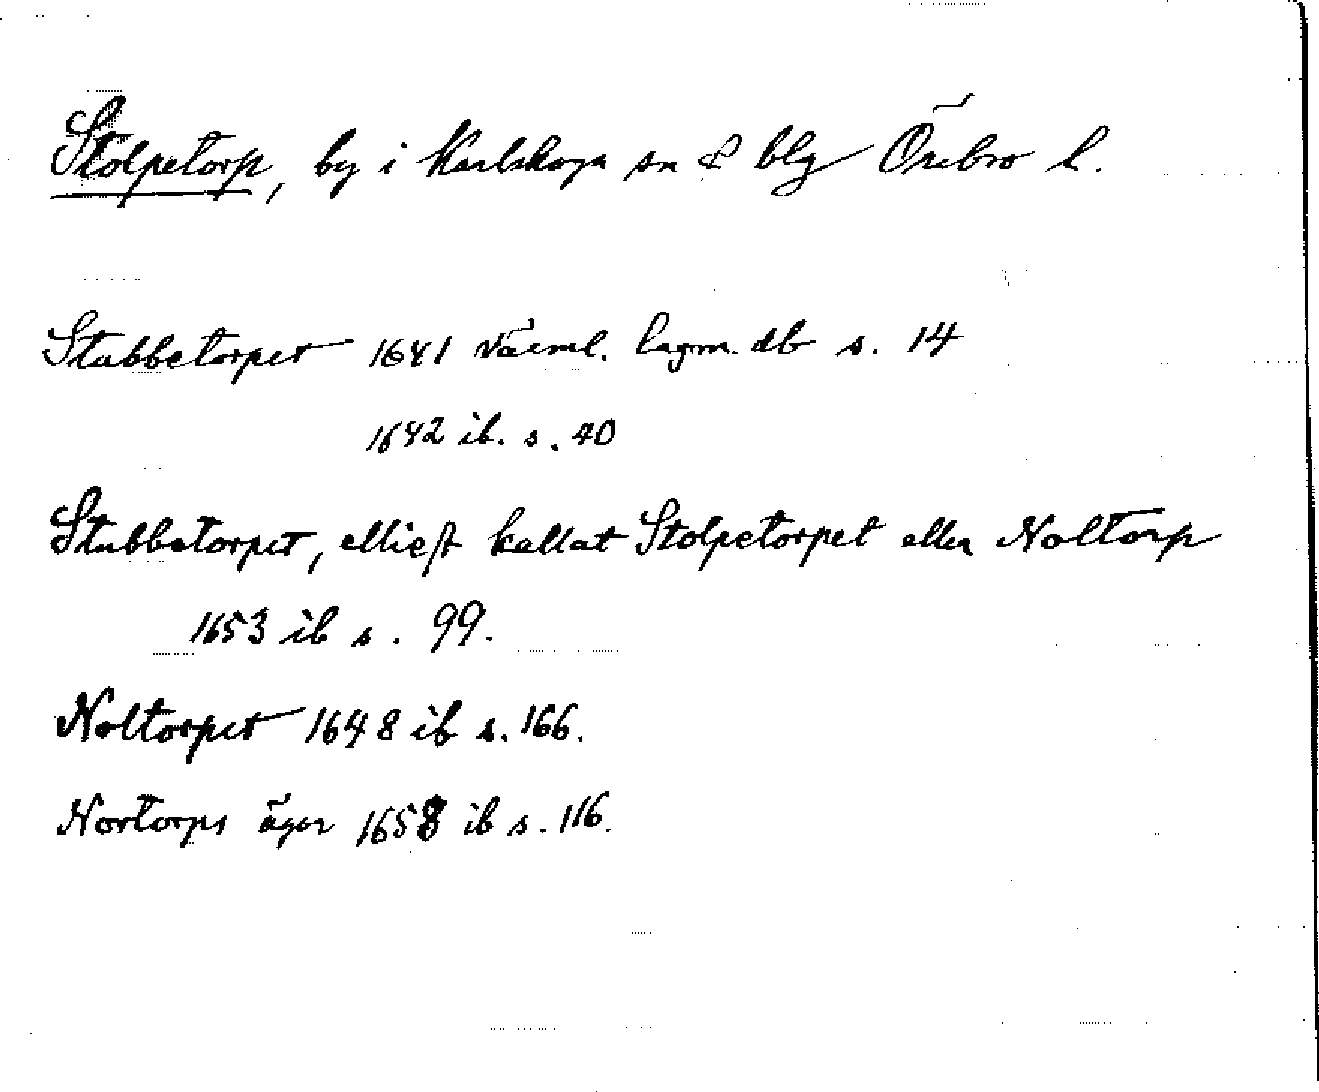 Stolpetorp, by i Karlskoga sn & blg Örebro l.
Stubbetorpet 1641 Värml. lagm. db s. 14
1642 ib. s. 40
Stubbetorpet, elliest kallat Stolpetorpet eller Noltorp
1653 ib s. 99.
Noltorpet 1648 ib s. 166.
Nortorps äger 1658 ib s. 116.